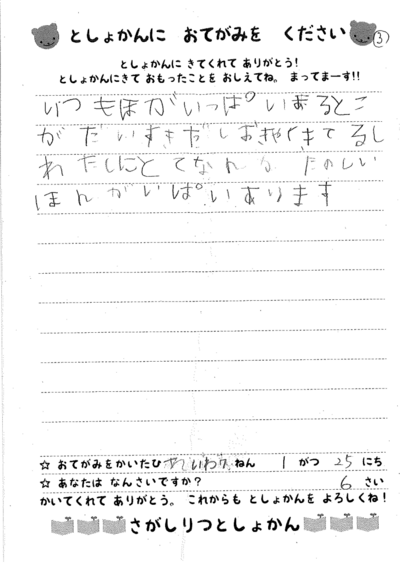 としょかんに おてがみを ください
③
としょかんに きてくれて ありがとう!
としょかんにきて おもったことを おしえてね。 まってまーす!!
いつもほがいっぱ°いあるとこ
がだいすきだしおきゃくきてるし
わたしにとてなんか たのしい
ほんがいぱ°いあります
☆ おてがみをかいたひ れいわ ねん 1 がつ 25 にち
☆ あなたは なんさいですか? 6 さい
かいてくれて ありがとう。 これからも としょかんを よろしくね!
さがしりつとしょかん